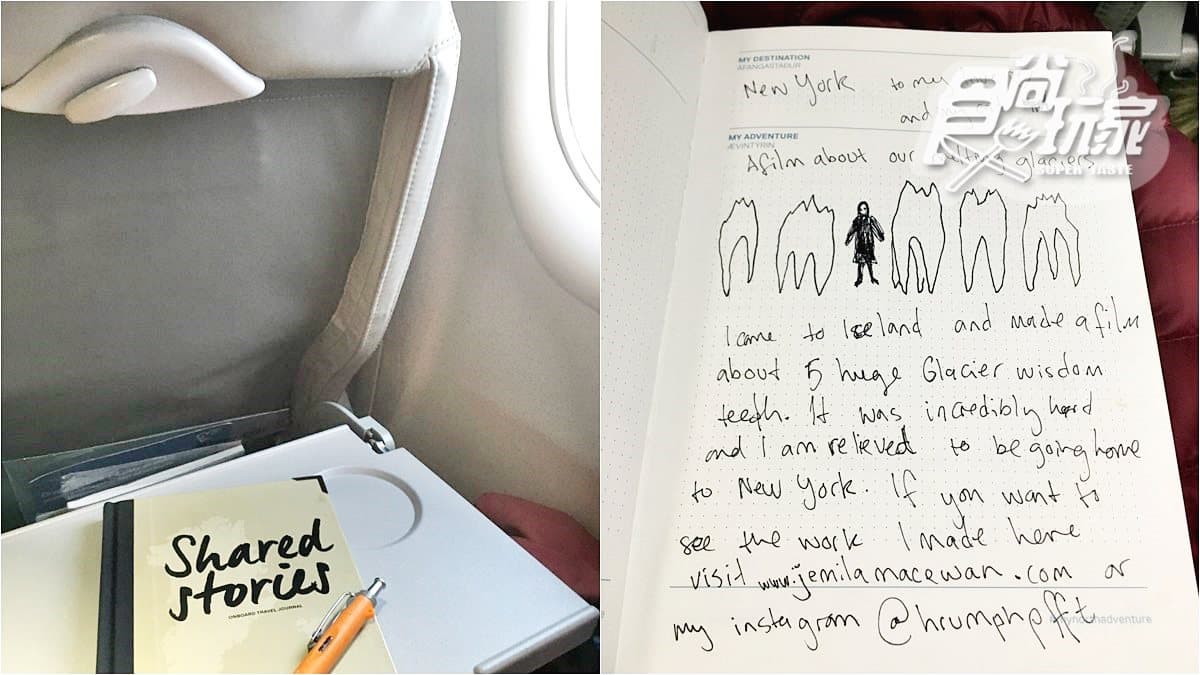 Shared
stories
ONBOARD TRAVEL JOURNAL
MY DESTINATION
ÁFANGASTAÐUR
New York to my
and
MY ADVENTURE
ÆVINTÝRIN
A film about our melting glaciers
I came to Iceland and made a film
about 5 huge Glacier wisdom
teeth. It was incredibly hard
and I am relieved to be going home
to New York. If you want to
see the work I made here
visit www.jemilamacewan.com or
my instagram @hrumphpfft
食尚玩家
SUPER TASTE